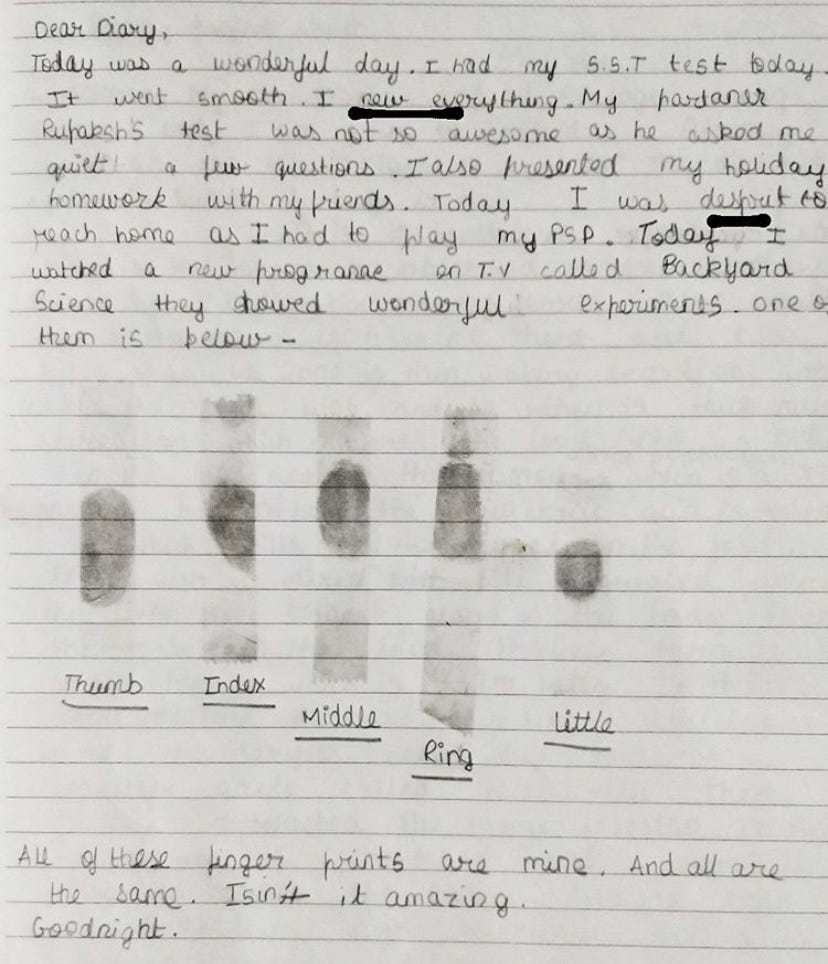 Dear Diary,
Today was a wonderful day. I had my S.S.T test today.
It went smooth. I new everything. My pardaner
Rupaksh's test was not so awesome as he asked me
quiet a few questions. I also presented my holiday
homework with my friends. Today I was desprut to
reach home as I had to play my PSP. Today I
watched a new programe on T.V called Backyard
Science they showed wonderful experiments. one of
them is below -
Thumb
Index
Middle
Ring
Little
All of these finger prints are mine. And all are
the same. Isin't it amazing.
Goodnight.